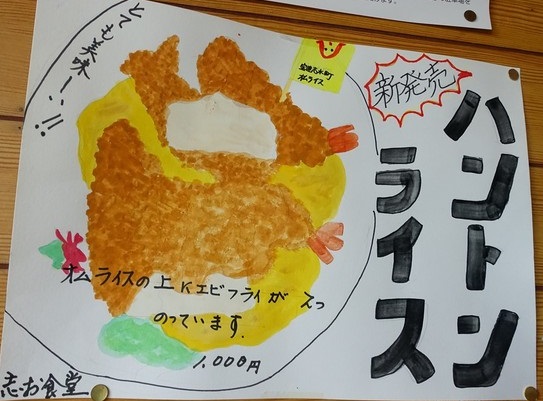 新発売
ハントン
ライス
とても美味ーい!!
オムライスの上にエビフライが2つ
のっています.
1,000円
志お食堂